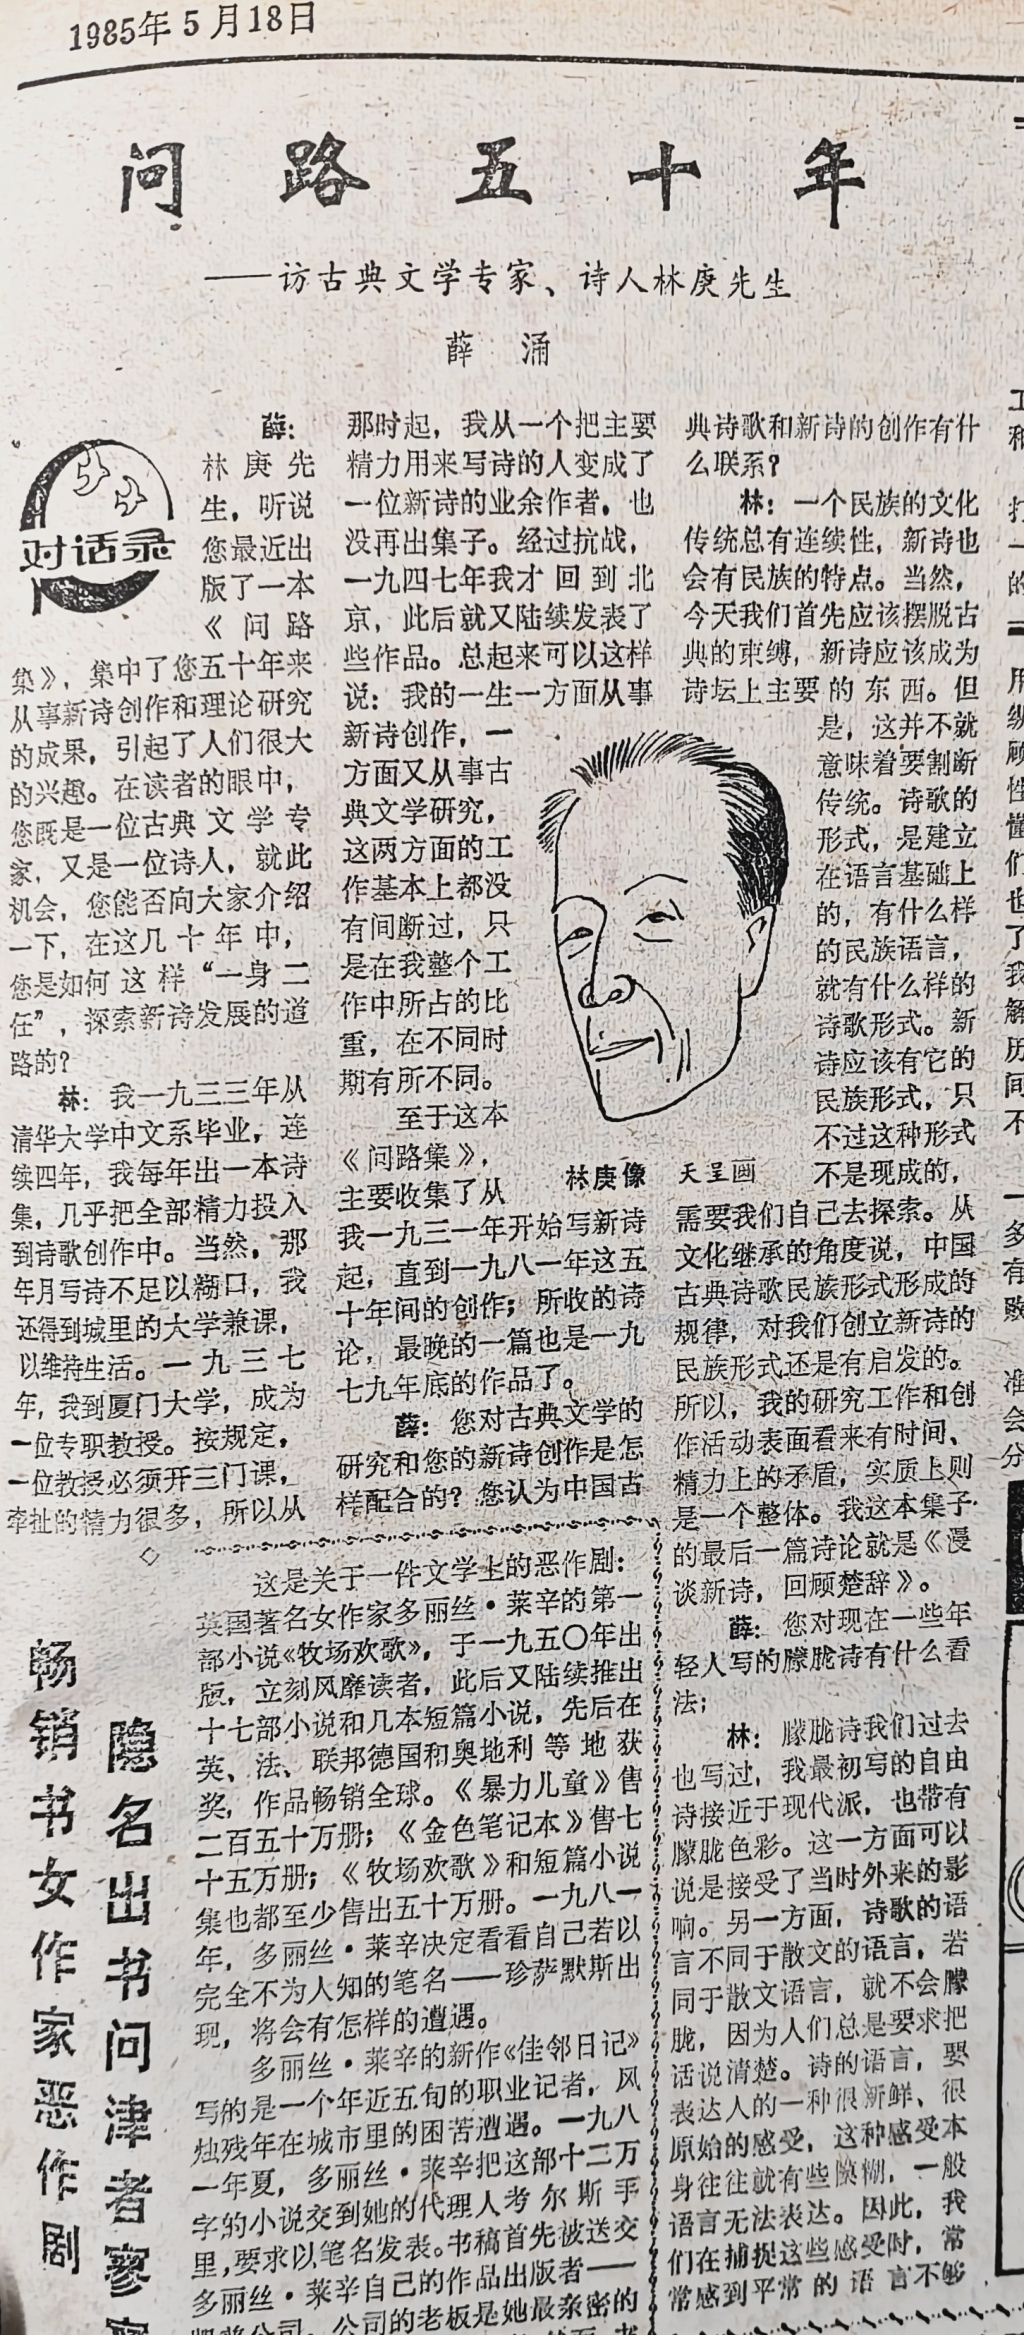 1985年5月18日
问路五十年
——访古典文学专家、诗人林庚先生
薛 涌
对话录
薛：
林庚先
生，听说
您最近出
版了一本
《问路
集》，集中了您五十年来
从事新诗创作和理论研究
的成果，引起了人们很大
的兴趣。在读者的眼中，
您既是一位古典文学专
家，又是一位诗人，就此
机会，您能否向大家介绍
一下，在这几十年中，
您是如何这样“一身二
任”，探索新诗发展的道
路的？
林：我一九三三年从
清华大学中文系毕业，连
续四年，我每年出一本诗
集，几乎把全部精力投入
到诗歌创作中。当然，那
年月写诗不足以糊口，我
还得到城里的大学兼课，
以维持生活。一九三七
年，我到厦门大学，成为
一位专职教授。按规定，
一位教授必须开三门课，
牵扯的精力很多，所以从
那时起，我从一个把主要
精力用来写诗的人变成了
一位新诗的业余作者，也
没再出集子。经过抗战，
一九四七年我才回到北
京，此后就又陆续发表了
些作品。总起来可以这样
说：我的一生一方面从事
新诗创作，一
方面又从事古
典文学研究，
这两方面的工
作基本上都没
有间断过，只
是在我整个工
作中所占的比
重，在不同时
期有所不同。
至于这本
《问路集》，
主要收集了从
我一九三一年开始写新诗
起，直到一九八一年这五
十年间的创作；所收的诗
论，最晚的一篇也是一九
七九年底的作品了。
薛：您对古典文学的
研究和您的新诗创作是怎
样配合的？您认为中国古
典诗歌和新诗的创作有什
么联系？
林：一个民族的文化
传统总有连续性，新诗也
会有民族的特点。当然，
今天我们首先应该摆脱古
典的束缚，新诗应该成为
诗坛上主要的东西。但
是，这并不就
意味着要割断
传统。诗歌的
形式，是建立
在语言基础上
的，有什么样
的民族语言，
就有什么样的
诗歌形式。新
诗应该有它的
民族形式，只
不过这种形式
不是现成的，
林庚像 天呈画
需要我们自己去探索。从
文化继承的角度说，中国
古典诗歌民族形式形成的
规律，对我们创立新诗的
民族形式还是有启发的。
所以，我的研究工作和创
作活动表面看来有时间、
精力上的矛盾，实质上则
是一个整体。我这本集子
的最后一篇诗论就是《漫
谈新诗，回顾楚辞》。
薛：您对现在一些年
轻人写的朦胧诗有什么看
法；
林：朦胧诗我们过去
也写过，我最初写的自由
诗接近于现代派，也带有
朦胧色彩。这一方面可以
说是接受了当时外来的影
响。另一方面，诗歌的语
言不同于散文的语言，若
同于散文语言，就不会朦
胧，因为人们总是要求把
话说清楚。诗的语言，要
表达人的一种很新鲜、很
原始的感受，这种感受本
身往往就有些模糊，一般
语言无法表达。因此，我
们在捕捉这些感受时，常
常感到平常的语言不够
畅销书女作家恶作剧
隐名出书问津者寥
这是关于一件文学上的恶作剧：
英国著名女作家多丽丝·莱辛的第一
部小说《牧场欢歌》，于一九五〇年出
版，立刻风靡读者，此后又陆续推出
十七部小说和几本短篇小说，先后在
英、法、联邦德国和奥地利等地获
奖，作品畅销全球。《暴力儿童》售
二百五十万册；《金色笔记本》售七
十五万册；《牧场欢歌》和短篇小说
集也都至少售出五十万册。一九八一
年，多丽丝·莱辛决定看看自己若以
完全不为人知的笔名——珍萨默斯出
现，将会有怎样的遭遇。
多丽丝·莱辛的新作《佳邻日记》
写的是一个年近五旬的职业记者，风
烛残年在城市里的困苦遭遇。一九八
一年夏，多丽丝·莱辛把这部十二万
字的小说交到她的代理人考尔斯手
里，要求以笔名发表。书稿首先被送交
多丽丝·莱辛自己的作品出版者——
公司。公司的老板是她最亲密的